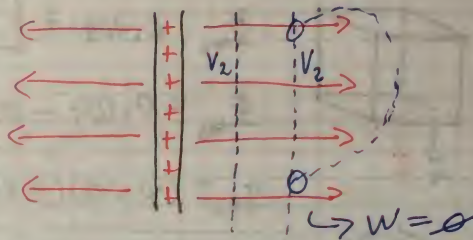 +
+
V₂ V₂
+
+
+
+
+
W = 0